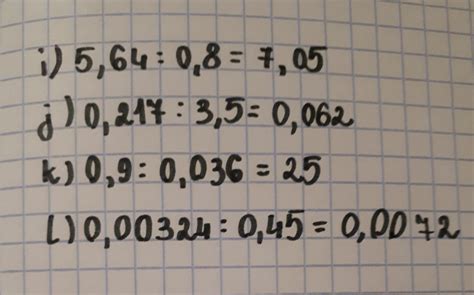 i) 5,64 : 0,8 = 7,05
j) 0,217 : 3,5 = 0,062
k) 0,9 : 0,036 = 25
l) 0,00324 : 0,45 = 0,0072